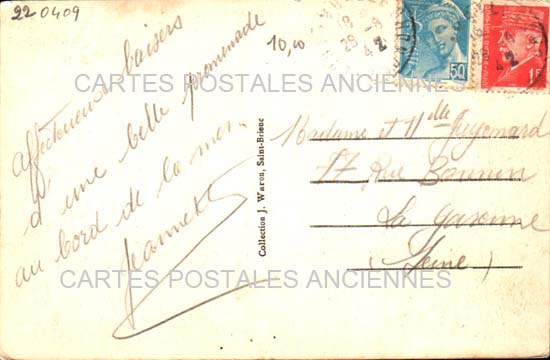 22 0409
10,00
50
Affectueux baisers
d'une belle promenade
au bord de la mer.
Jeannette
Collection J. Waron, Saint-Brieuc
Madame et Mlle
17 Rue
La Garenne
(Seine)
CARTES POSTALES ANCIENNES
CARTES POSTALES ANCIENNES